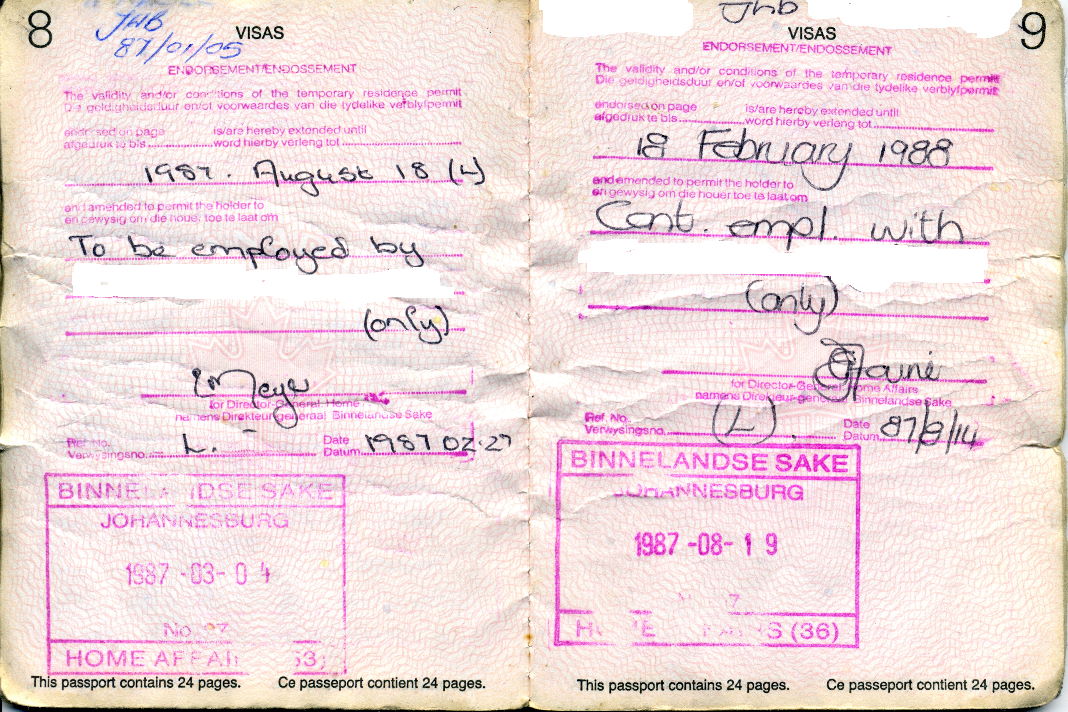 8
JHB
87/01/05
VISAS
ENDORSEMENT/ENDOSSEMENT
The validity and/or conditions of the temporary residence permit
Die geldigheidsduur en/of voorwaardes van die tydelike verblyfpermit
endorsed on page is/are hereby extended until
afgedruk te bls. word hierby verleng tot
1987. August 18 (L)
and amended to permit the holder to
en gewysig om die houer toe te laat om
To be employed by
(only)
for Director-General Home
namens Direkteur-generaal Binnelandse Sake
Ref. No.
Verwysingsno. L. Date
Datum 1987 02.27
BINNELANDSE SAKE
JOHANNESBURG
1987 -03- 0 4
No. 97
HOME AFFAI 53)
This passport contains 24 pages. Ce passeport contient 24 pages.
Jhb
9
VISAS
ENDORSEMENT/ENDOSSEMENT
The validity and/or conditions of the temporary residence permit
Die geldigheidsduur en/of voorwaardes van die tydelike verblyfpermit
endorsed on page is/are hereby extended until
afgedruk te bls. word hierby verleng tot
18 February 1988
and amended to permit the holder to
en gewysig om die houer toe te laat om
Cont. empl. with
(only)
for Director-General Home Affairs
namens Direkteur-generaal Binnelandse Sake
Ref. No.
Verwysingsno. (L) Date
Datum 87/8/14
BINNELANDSE SAKE
JOHANNESBURG
1987 -08- 1 9
S (36)
This passport contains 24 pages. Ce passeport contient 24 pages.